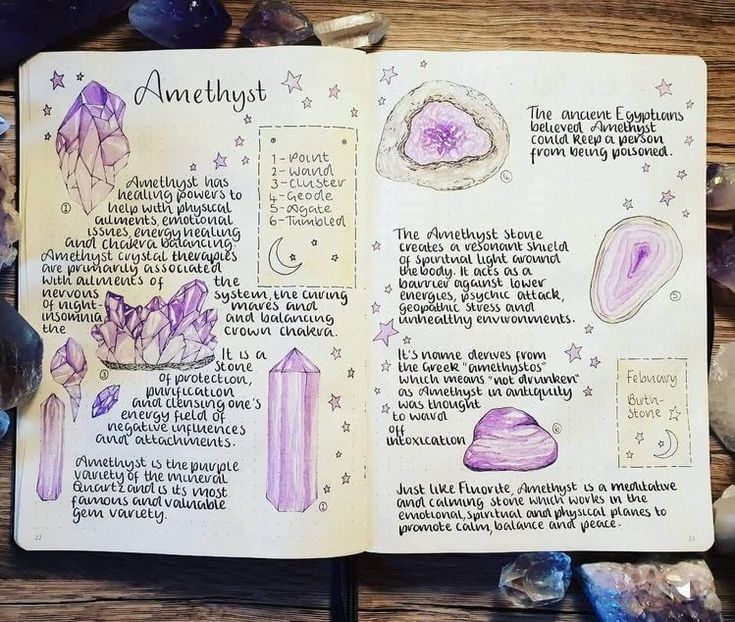 Amethyst
1 - Point
2 - Wand
3 - Cluster
4 - Geode
5 - Agate
6 - Tumbled
①
Amethyst has
healing powers to
help with physical
ailments, emotional
issues, energy healing
and chakra balancing.
Amethyst crystal therapies
are primarily associated
with ailments of the
nervous system, the curing
of night mares and
insomnia and balancing
the crown chakra.
③
It is a
stone
of protection,
purification
and clensing one's
energy field of
negative influences
and attachments.
②
Amethyst is the purple
variety of the mineral
Quartz and is its most
famous and valuable
gem variety.
22
④
The ancient Egyptians
believed Amethyst
could keep a person
from being poisoned.
The Amethyst stone
creates a resonant shield
of spiritual light around
the body. It acts as a
barrier against lower
energies, psychic attack,
geopathic stress and
unhealthy environments.
⑤
It's name derives from
the Greek "amethystos"
which means "not drunken"
as Amethyst in antiquity
was thought
to ward
off
intoxication
⑥
February
Birth-
stone
Just like Fluorite, Amethyst is a meditative
and calming stone which works in the
emotional, spiritual and physical planes to
promote calm, balance and peace.
23